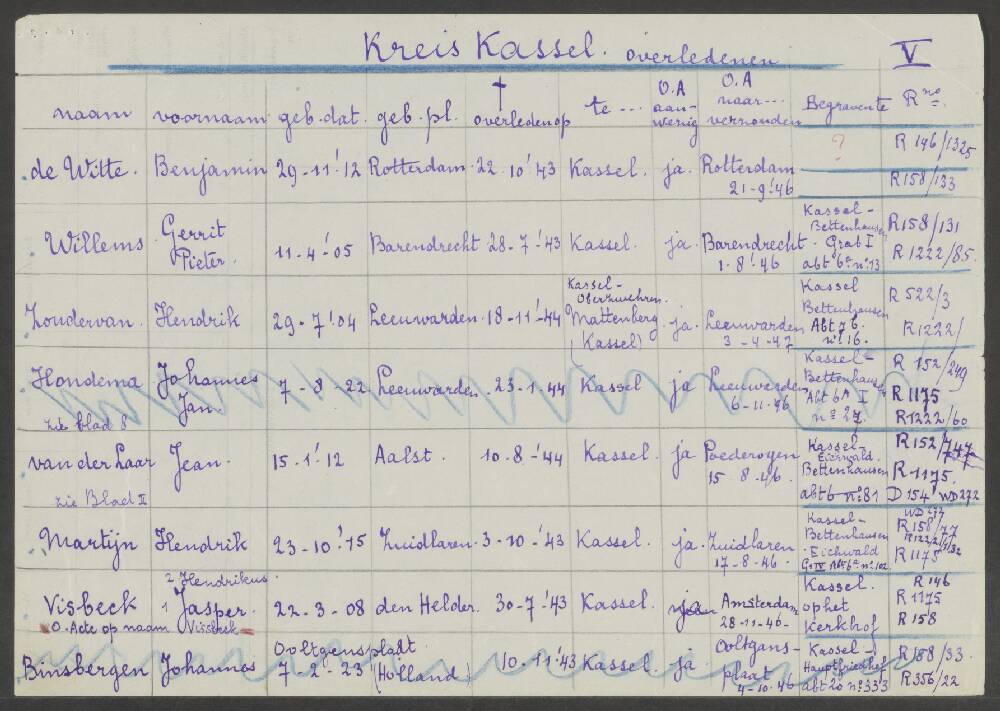 Kreis Kassel. overledenen V
naam voornaam geb. dat. geb. pl. † overleden op te ... O.A aan-wezig O.A naar... verzonden Begraven te R no.
de Witte. Benjamin 29-11-'12 Rotterdam 22-10-'43 Kassel. ja. Rotterdam 21-9-'46 ? R 146/1325
R 158/133
Willems Gerrit Pieter. 11-4-'05 Barendrecht 28-7-'43 Kassel. ja. Barendrecht 1-8-'46 Kassel-Bettenhausen Grab I abt 6a no 13 R158/131
R 1222/85.
Zondervan. Hendrik 29-7-'04 Leeuwarden 18-11-'44 Kassel-Oberzwehren Mattenberg (Kassel) ja. Leeuwarden 3-4-'47 Kassel Bettenhausen Abt 7 b. no 16. R 522/3
R1222/
Hondema Johannes Jan. 7-8-22 Leeuwarden. 23-1-44 Kassel ja Leeuwerden 6-11-46 Kassel-Bettenhausen Abt 6A I no 27. R 152/249
R 1175
zie blad 8 R1222/60
van der Laar Jean. 15-1-'12 Aalst. 10-8-'44 Kassel. ja Poederoyen 15-8-46. Kassel-Eichwald. Bettenhausen abt 6 no 81 R152/747
R-1175.
zie Blad II D 154 WD 272
Martijn Hendrik 23-10-'15 Zuidlaren. 3-10-'43 Kassel. ja. Zuidlaren 17-8-46. Kassel-Bettenhausen Eichwald WD 277
R158/77
R1175
Visbeck 2 Hendrikus. 1 Jasper. 22-3-08 den Helder. 30-7-'43 Kassel. ja Amsterdam 28-11-46- Kassel. op het Kerkhof R 146
R 1175
O. Acte op naam Vissbek R 158
Binsbergen Johannes 7-2-'23 Ooltgensplaat (Holland) 10-11-'43 Kassel. ja Ooltgans-plaat 4-10-46 Kassel-Hauptfriedhof abt 20 no 333 R158/33.
R356/22